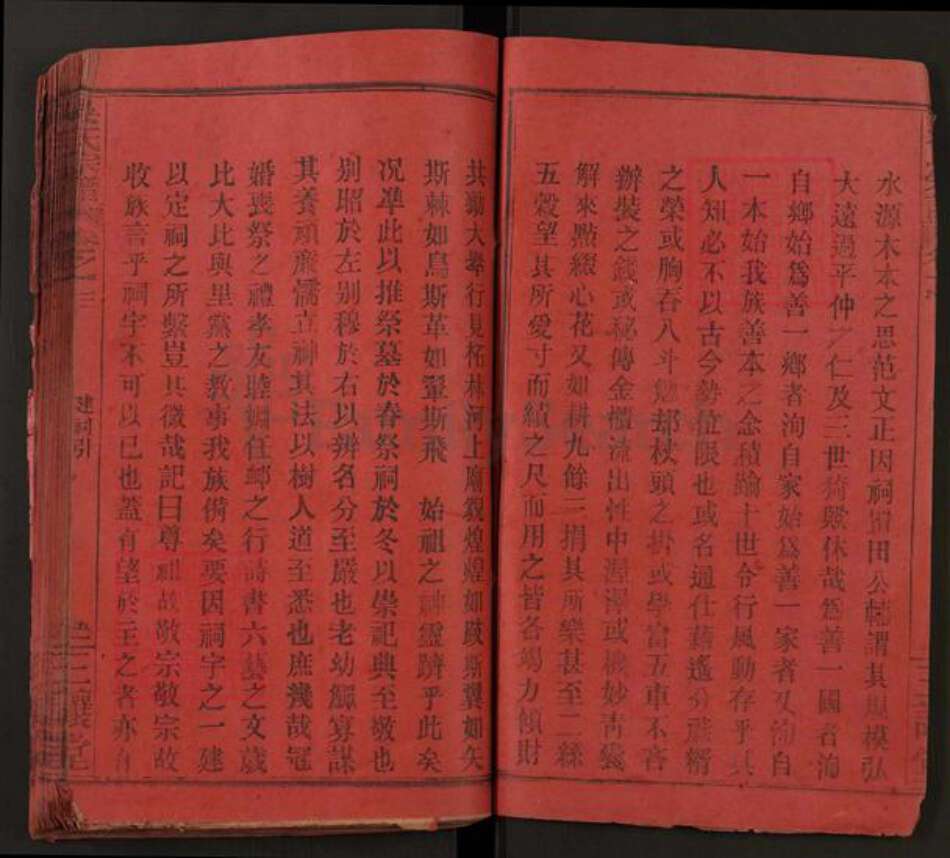 水源木本之思范文正因祠置田公輔謂其規模弘
大遠過平仲之仁及三世猗歟休哉為善一國者洵
自鄉始爲善一鄉者洵自家始爲善一家者又洵自
一本始我族善本之念積綸十世令行風動存乎其
人知必不以古今勢位限也或名通仕籍遙分
之榮或胸吞八斗勉却杖頭之掛或學富五車不吝
辦裝之錢或秘傳金櫃流出性中渥澤或機妙靑
解來點綴心花又如耕九餘三捐其所樂甚至二絲
五榖望其所愛寸而績之尺而用之皆各竭力傾財
共勷大舉行見柘林河上廟觀煌煌如跂斯翼如矢
斯棘如鳥斯革如翬斯飛 始祖之神靈躋乎此矣
况準此以推祭墓於春祭祠於冬以崇祀典至敬也
别昭於左别穆於右以辨名分至嚴也老幼鰥寡謀
其養頑廉懦立神其法以樹人道至悉也庶幾哉冠
婚喪祭之禮孝友睦婣任䘏之行詩書六藝之文歲
比大比與里黨之敎事我族備矣要因祠宇之一建
以定祠之所繫豈其微哉記曰尊祖故敬宗敬宗故
收族言乎祠宇不可以已也蓋有望於主之者亦
氏宗譜 卷之三
建祠引